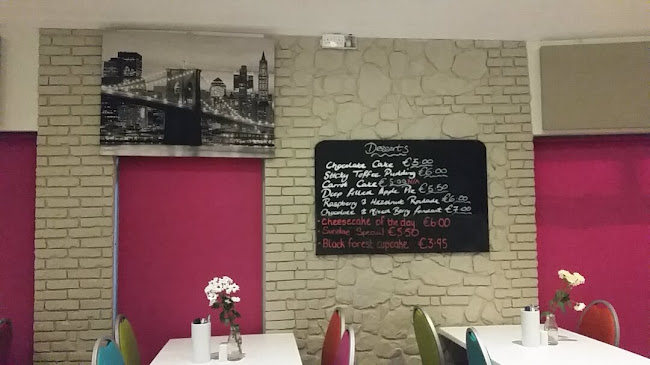 Desserts
Chocolate Cake €5.00
Sticky Toffee Pudding €6.00
Carrot Cake €5.99
Deep filled Apple Pie €6.50
Raspberry & Hazelnut Roulade €6.00
Chocolate & Mixed Berry fondant €7.00
- Cheesecake of the day €6.00
- Sundae Special €5.50
- Black forest cupcake €3.95